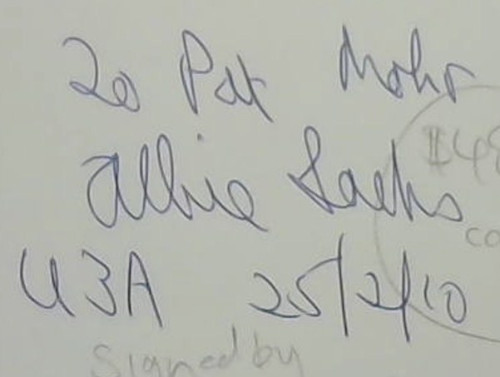 To Pat Mohr
Albie Sachs
U3A 25/2/10
$48
co
Signed by